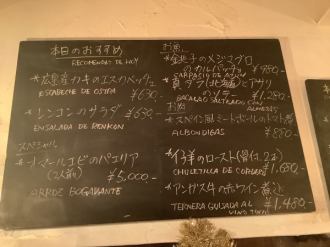 本日のおすすめ
RECOMENDO DE HOY
*広島産カキのエスカベッシュ
ESCABECHE DE OSTRA ¥630-
*レンコンのサラダ ¥630-
ENSALADA DE RENKON
スペシャル
*オマールエビのパエリア
(2人前) ¥5,000-
ARROZ BOGAVANTE
お魚
*銚子のメジマグロ
のカルパッチョ ¥980-
*真ダラ(北海道)とアサリ
のソテー ¥1,280-
BACALAO SALTEADO CON
ALMEJAS
お肉
*スペイン風ミートボールのトマト煮
ALBONDIGAS ¥880-
*仔羊のロースト(骨付、2本)
CHULETILLA DE CORDERO ¥1,680-
*アンガス牛の赤ワイン煮込
TERNERA GUISADA AL
VINO TINTO ¥1,480-